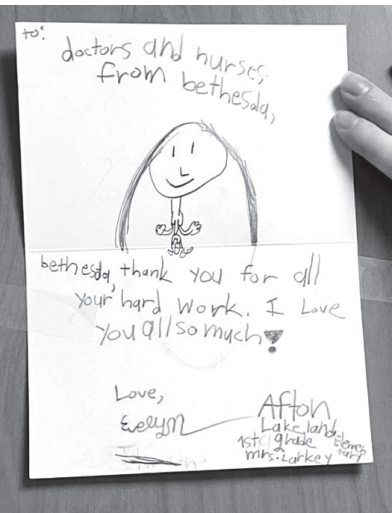 to:
doctors and nurses,
from bethesda,
bethesda, thank you for all
your hard work. I Love
you all so much
Love,
Evelyn Afton
Lakeland Elementary
1st grade
mrs. Larkey